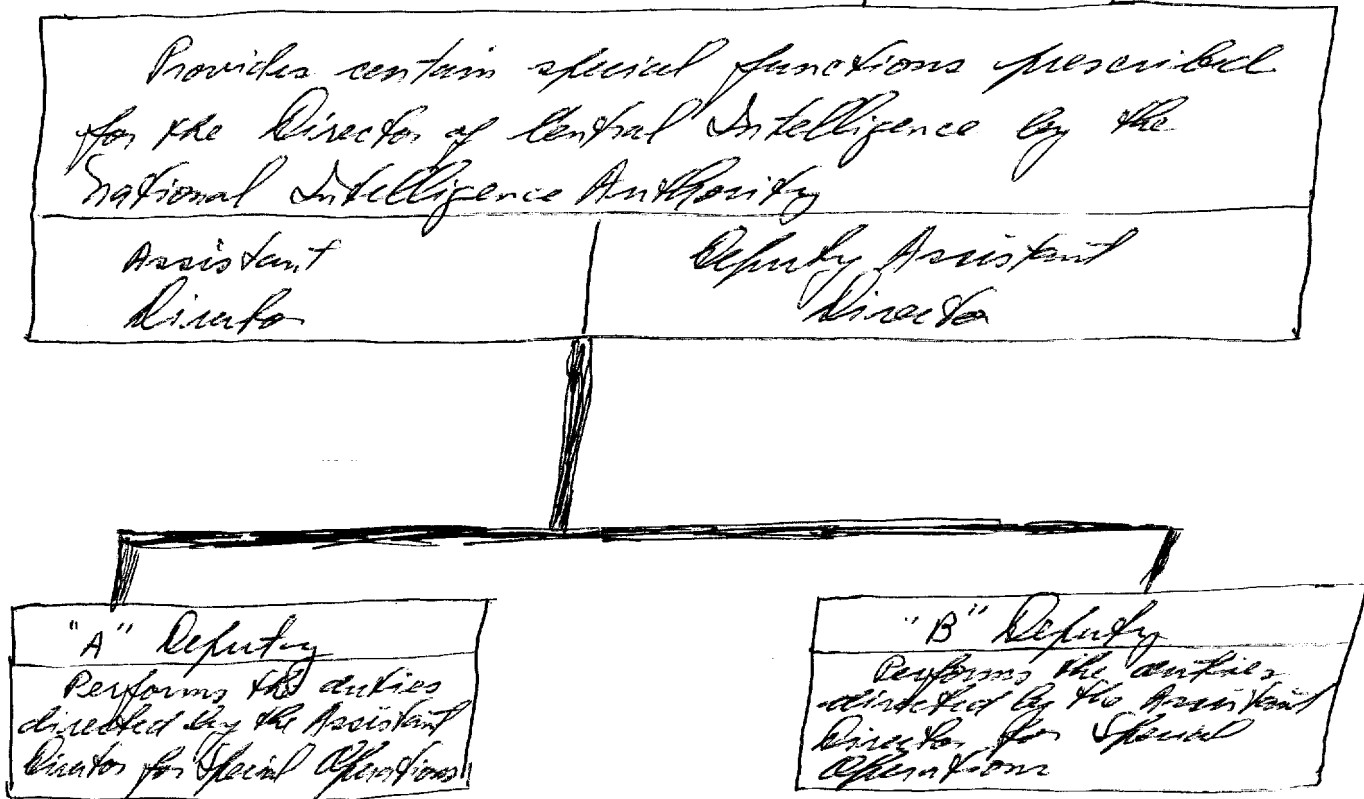 Provides certain special functions prescribed
for the Director of Central Intelligence by the
National Intelligence Authority
Assistant
Director
Deputy Assistant
Director
"A" Deputy
Performs the duties
directed by the Assistant
Director for Special Operations
"B" Deputy
Performs the duties
directed by the Assistant
Director for Special
Operations